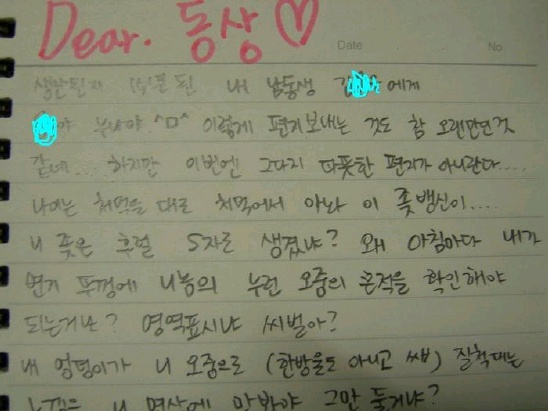 Dear. 동상♡
Date No.
생만된지 된 내 남동생 에게
야 누나야 ^ㅁ^ 이렇게 편지보내는 것도 참 오랜만인것
같네... 하지만 이번엔 그다지 따풋한 편지가 아니란다....
나이는 처먹을 대로 처먹어서 아놔 이 좃뱅신이....
니 좃은 후렬 S자로 생겼냐? 왜 아침마다 내가
변기 뚜껑에 니놈의 누런 오줌의 흔적을 확인해야
되는거냐? 영역표시냐 씨벌아?
내 엉덩이가 니 오줌으로 (한방울도 아니고 쌉) 질척대는
니 면상에 맛봐야 그만 둘거냐?